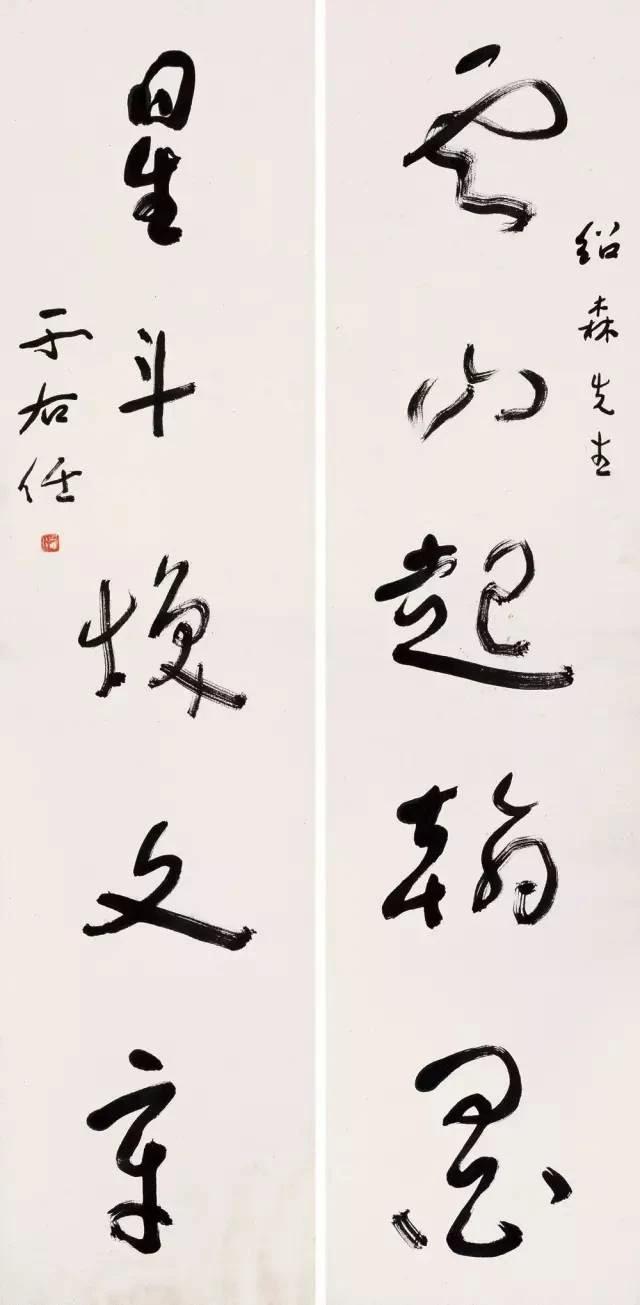 紹森先生
雲山起翰墨
星斗煥文章
于右任